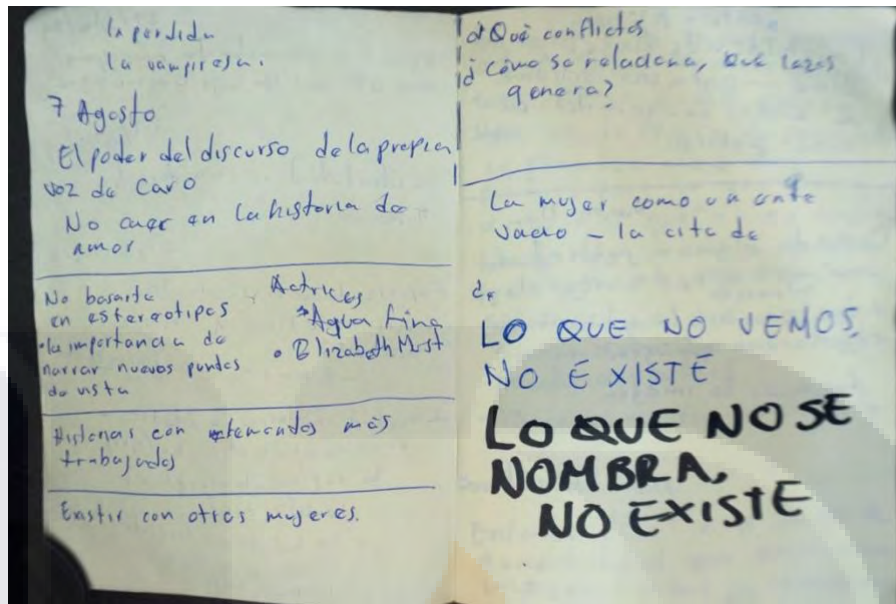 la perdida
la vampiresa.
7 Agosto
El poder del discurso de la propia
voz de Caro
No caer en la historia de
amor
No basarte
en estereotipos
•la importancia de
narrar nuevos puntos
de vista
Actrices
Agua
• Elizabeth
Historias con más
trabajados
Existir con otras mujeres.
¿Qué conflictos
¿cómo se relaciona, que lazos
genera?
La mujer como un ente
vacio – la cita de
LO QUE NO VEMOS,
NO EXISTE
LO QUE NO SE
NOMBRA,
NO EXISTE